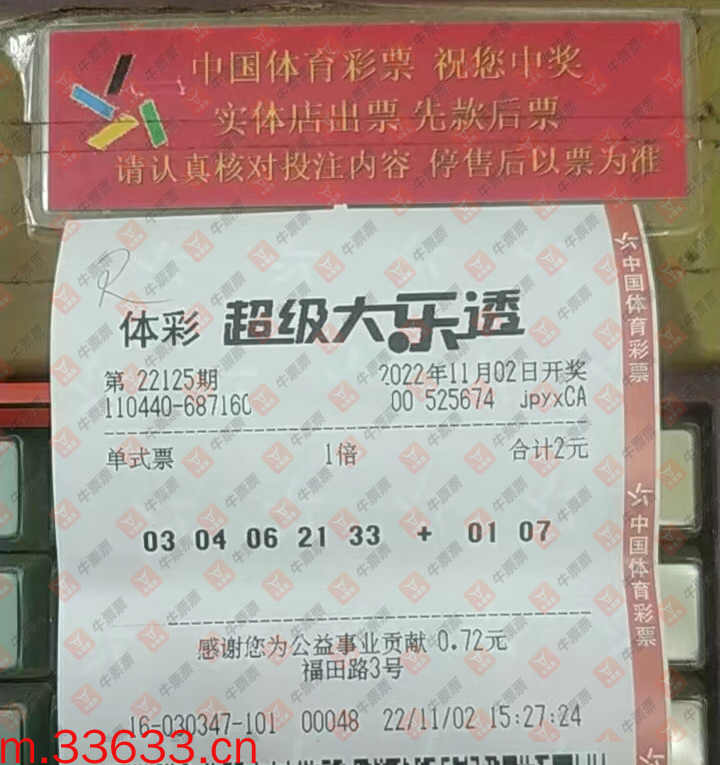 中国体育彩票 祝您中奖
实体店出票 先款后票
请认真核对投注内容 停售后以票为准
体彩 超级大乐透
第 22125期 2022年11月02日开奖
110440-687160 00 525674 jpyxCA
单式票 1倍 合计2元
03 04 06 21 33 + 01 07
感谢您为公益事业贡献 0.72元
福田路3号
16-030347-101 00048 22/11/02 15:27:24
中国体育彩票
中国体育彩票
牛票票
m.33633.cn